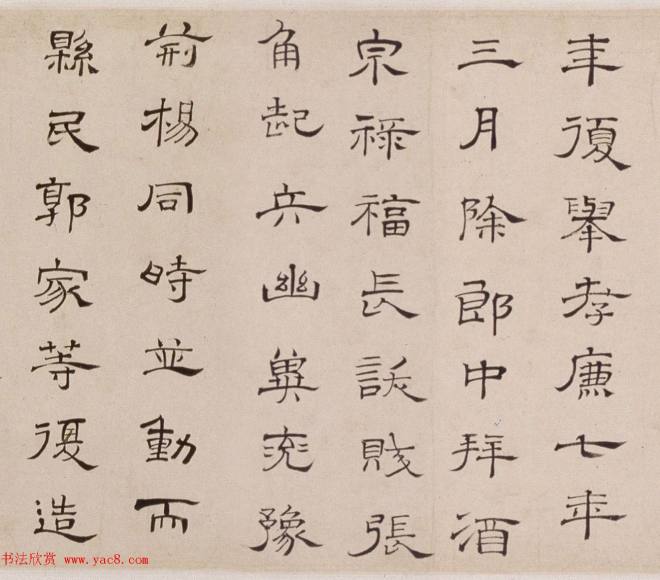 年復舉孝廉七年
三月除郎中拜酒
宗祿福長訞賊張
角起兵幽冀兗豫
荊楊同時並動而
縣民郭家等復造
书法欣赏 www.yac8.com